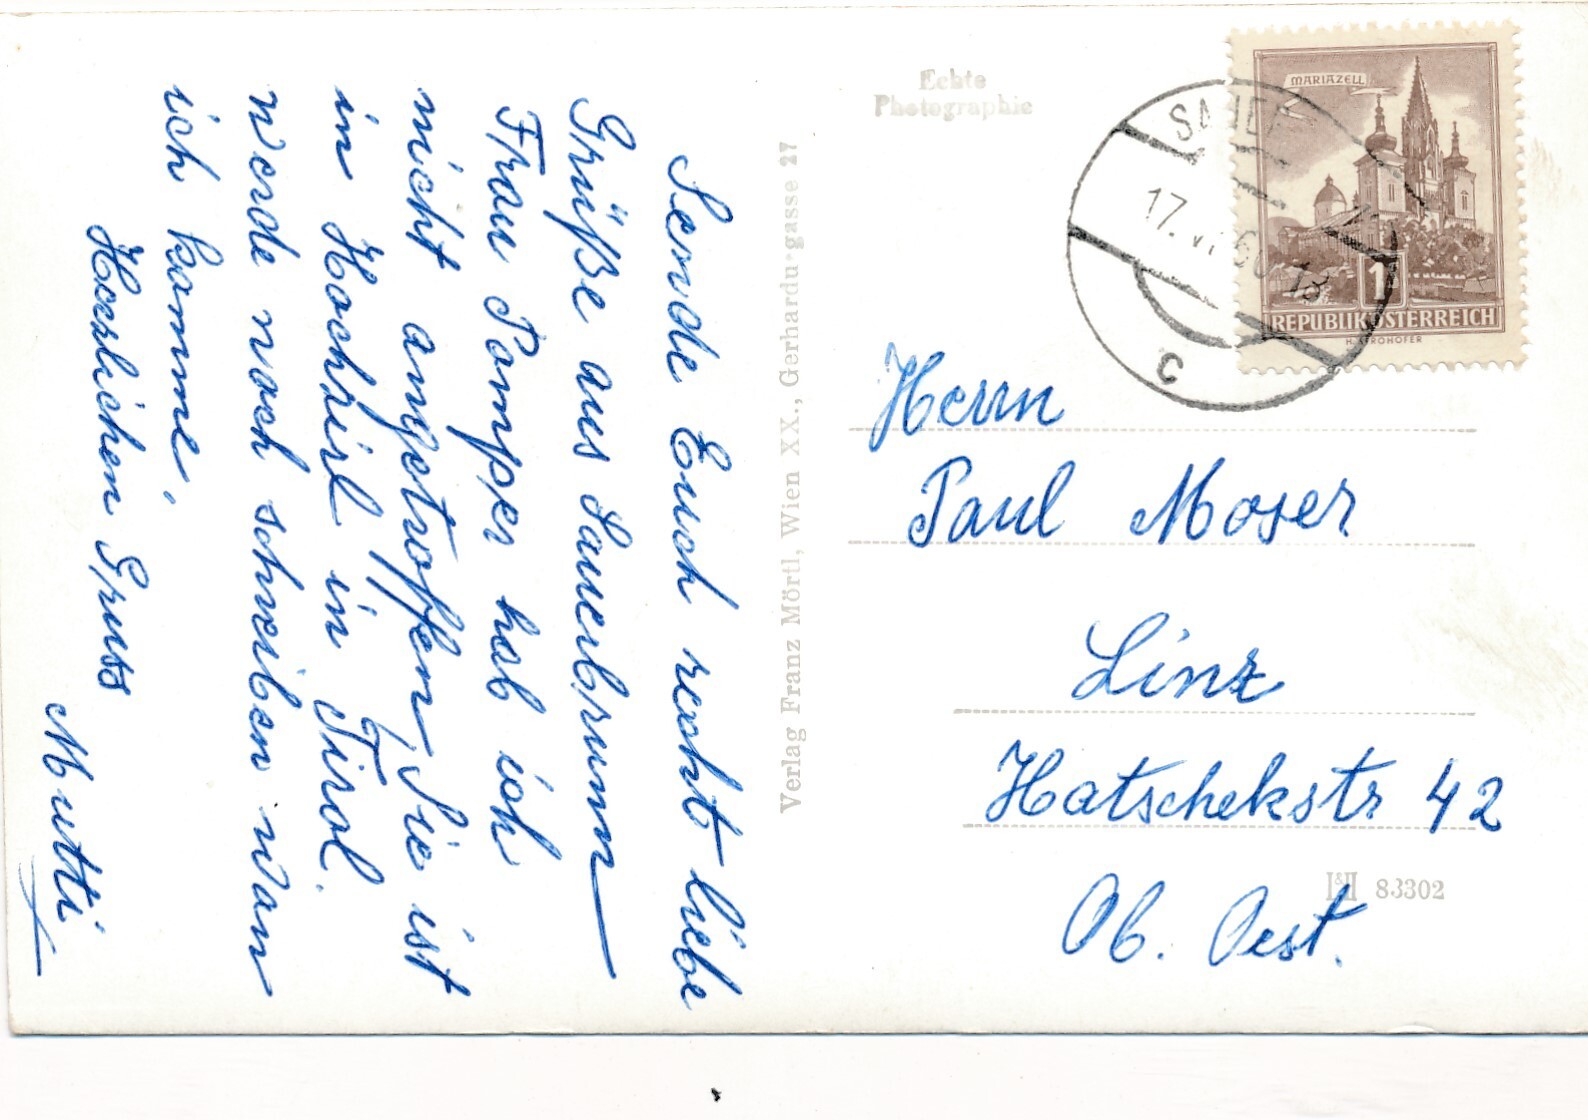 Sende Euch recht liebe
Grüße aus Sauerbrunn
Frau Pamper hab ich
nicht angetroffen, Sie ist
in Hochzirl in Tirol.
Werde noch schreiben wan
ich komme.
Herzlichen Gruss
Mutti
Verlag Franz Mörtl, Wien XX., Gerhardusgasse 27
Echte
Photographie
MARIAZELL
1
REPUBLIK ÖSTERREICH
17. VI. 60 13
c
Herrn
Paul Moser
Linz
Hatschekstr 42
Ob. Oest.
83302